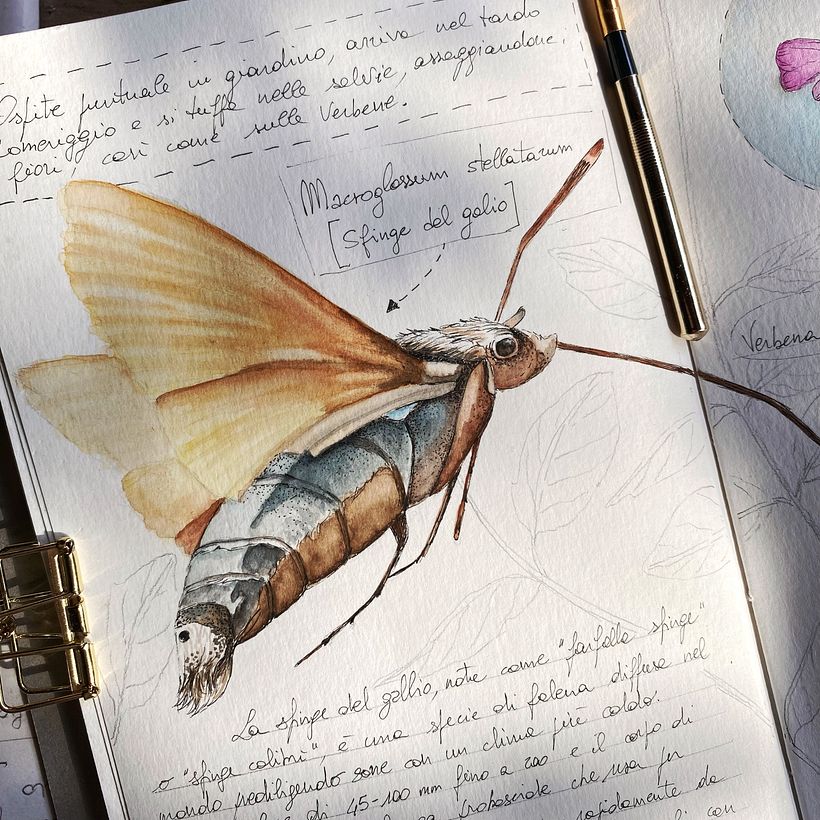 Ospite puntuale in giardino, arriva nel tardo
pomeriggio e si tuffa nelle salvie, assaggiandone i
fiori, così come sulle Verbene.
Macroglossum stellatarum
[Sfinge del galio]
Verbena
La sfinge del gallio, nota come "farfalla sfinge"
o "sfinge colibrì", è una specie di falena diffusa nel
mondo prediligendo zone con un clima più caldo.
di 45-100 mm fino a 200 e il corpo di
proboscide che usa per
rapidamente da
con